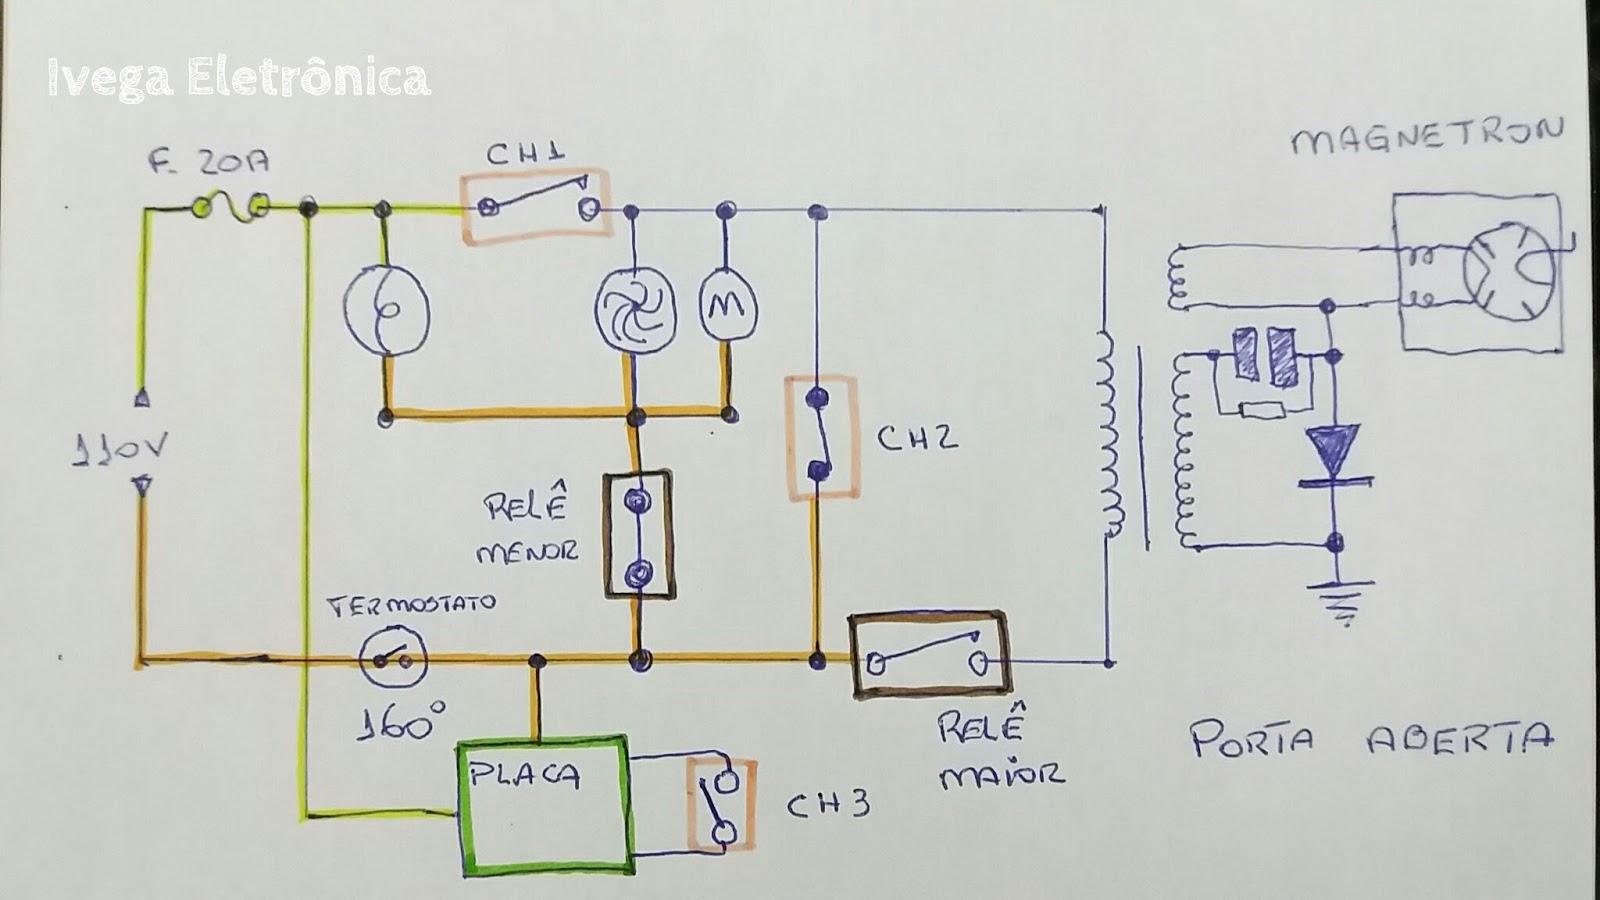 Ivega Eletrônica
F. 20A
CH1
MAGNETRON
110V
CH2
RELÊ
MENOR
TERMOSTATO
160°
RELÊ
MAIOR
PORTA ABERTA
PLACA
CH3
M